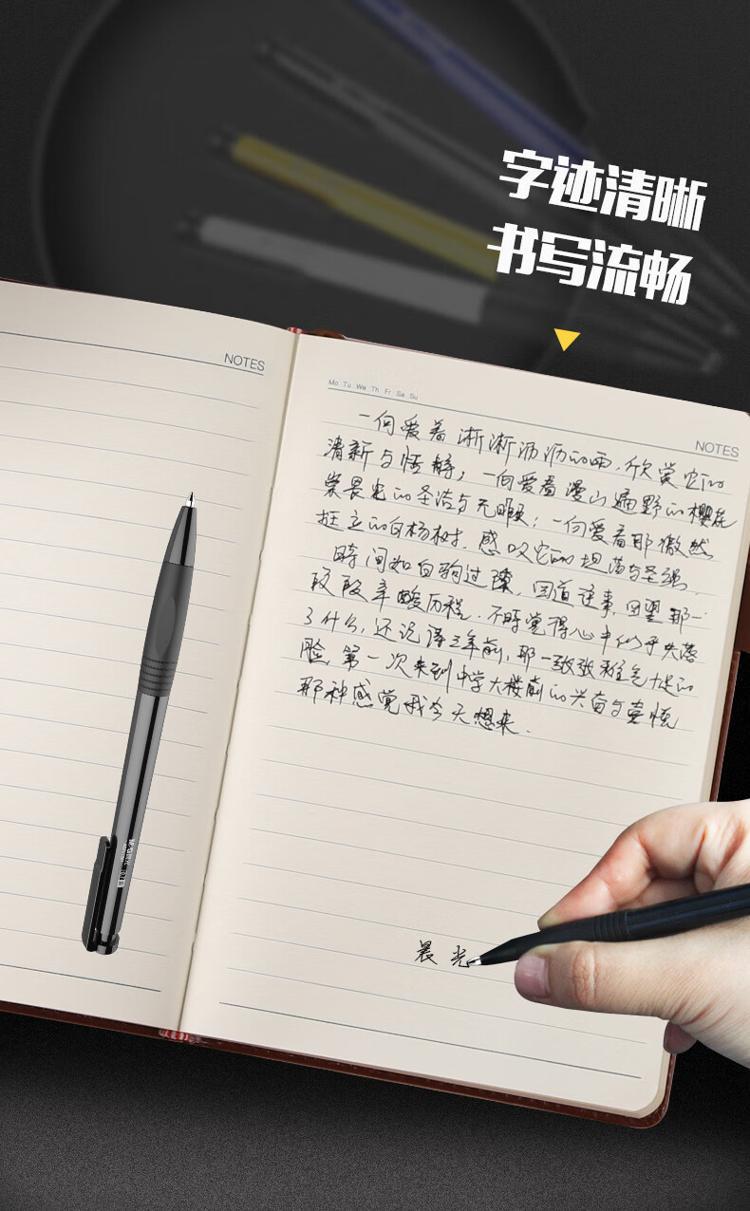 字迹清晰
书写流畅
NOTES
Mo Tu We Th Fr Sa Su
NOTES
一向爱着淅淅沥沥的雨，欣赏它的
清新与恬静；一向爱着漫山遍野的樱花
赏晨光的圣洁与无暇；一向爱着那傲然
挺立的白杨树，感叹它的坦荡与坚强。
时间如白驹过隙，回首往事，回望那一
段段辛酸历程，不时觉得心中似乎失落
了什么，还记得三年前，那一张张稚气十足的
脸，第一次来到中学大楼前的兴奋与喜悦
那种感觉我今天想来。
晨光